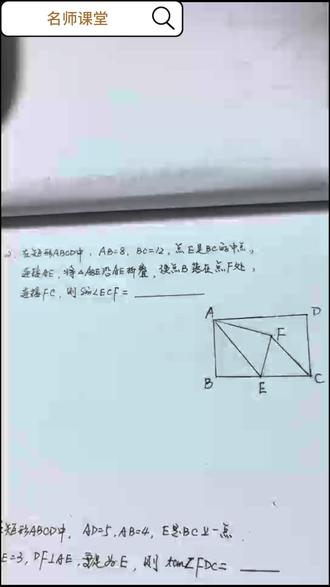 名师课堂
2. 在矩形ABCD中, AB=8, BC=12, 点E是BC的中点,
连接AE, 将△ABE沿AE折叠, 使点B落在点F处,
连接FC, 则sin∠ECF =
A D
F
B E C
矩形ABCD中, AD=5, AB=4, E是BC上一点
E=3, DF⊥AE, 垂足为E, 则 tan∠FDC =